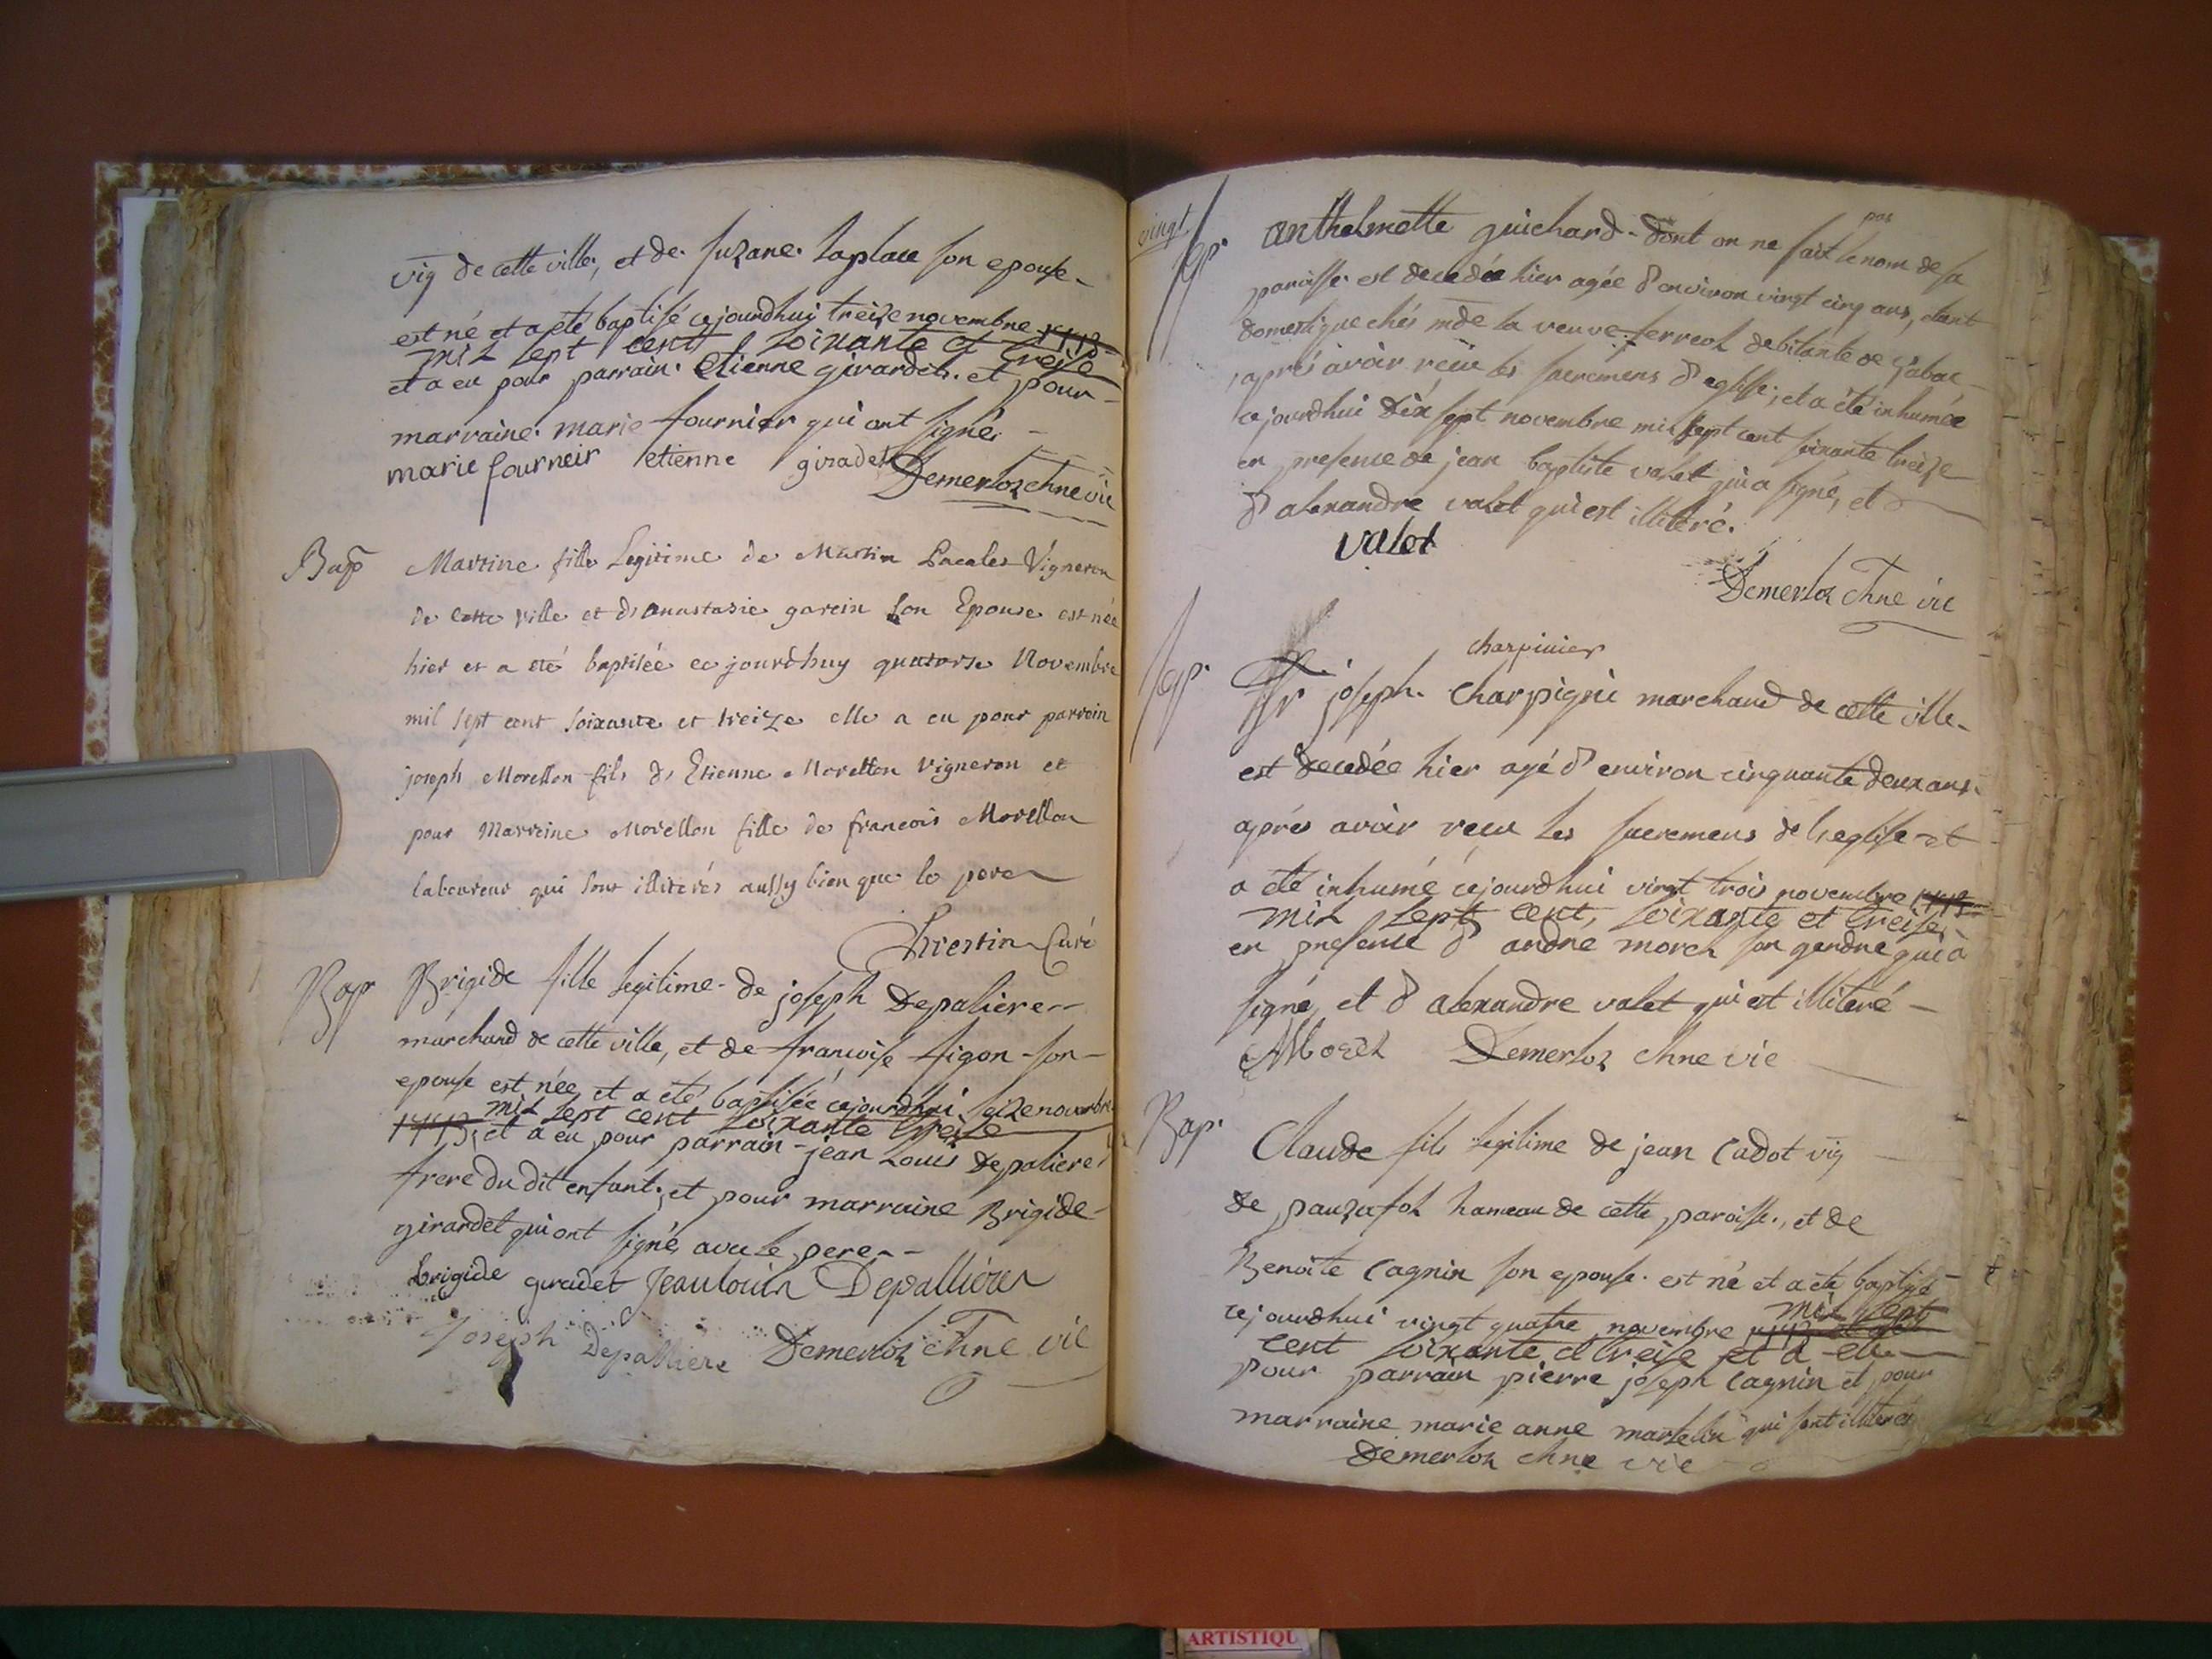 vig de cette ville, et de suzane laplace son epouse
est né et a eté baptisé cejourdhuy treize novembre 1773
mil sept cent soixante et treise
et a eu pour parrain etienne girardet et pour
marraine marie fournier qui ont signé
marie fourneir etienne giradet Demerloz chne vic
Bap Martine fille Legitime de Martin Vigneron
de cette ville et d'anastasie garein son Epouse est née
hier et a eté baptisée ce jourdhuy quatorse Novembre
mil sept cent soixante et treize elle a eu pour parrein
joseph Morellon fils de Etienne Morellon vigneron et
pour Marreine Morellon fille de francois Morellon
laboureur qui sont illiterés aussy bien que le pere
Chrestin Curé
Bap Brigide fille legitime de joseph Depaliere
marchand de cette ville, et de francoise figon son
epouse est née et a eté baptisée cejourdhui seize novembre
mil sept cent soixante treize
1773, et a eu pour parrain jean Louis Depaliere
frere du dit enfant, et pour marraine Brigide
girardet qui ont signé avec le pere
brigide giradet Jean louis Depallierer
Joseph Depalliere Demerloz chne vic
vingt
Sep. anthelmette guichard dont on ne sait pas le nom de sa
paroisse est decedée hier agée d'environ vingt cinq ans, etant
domestique chés mde la veuve ferreol debitante de tabac
aprés avoir reçu les sacremens d'eglise; et a eté inhumée
cejourdhui dix sept novembre mil sept cent soixante treize
en presence de jean baptiste valet qui a signé, et
d'alexandre valet qui est illiteré.
valet
Demerloz chne vic
charpinier
Sep. Sr joseph charpigni marchand de cette ville
est decedée hier agé d'environ cinquante deux ans
aprés avoir reçu les sacremens de l'eglise et
a eté inhumé cejourdhui vingt trois novembre 1773
mil sept cent, soixante et treise,
en presence d'andré morel son gendre qui a
signé et d'alexandre valet qui est illiteré
AMorel Demerloz chne vic
Bap. Claude fils legitime de jean Cadot vig
de pauzafol hameau de cette paroisse, et de
Benoite Cagnin son epouse est né et a eté baptisé
cejourdhui vingt quatre novembre 1773 mil sept
cent soixante et treise et a eu
pour parrain pierre joseph cagnin et pour
marraine marie anne martelin qui sont illiterés
Demerloz chne vic
ARTISTIQU